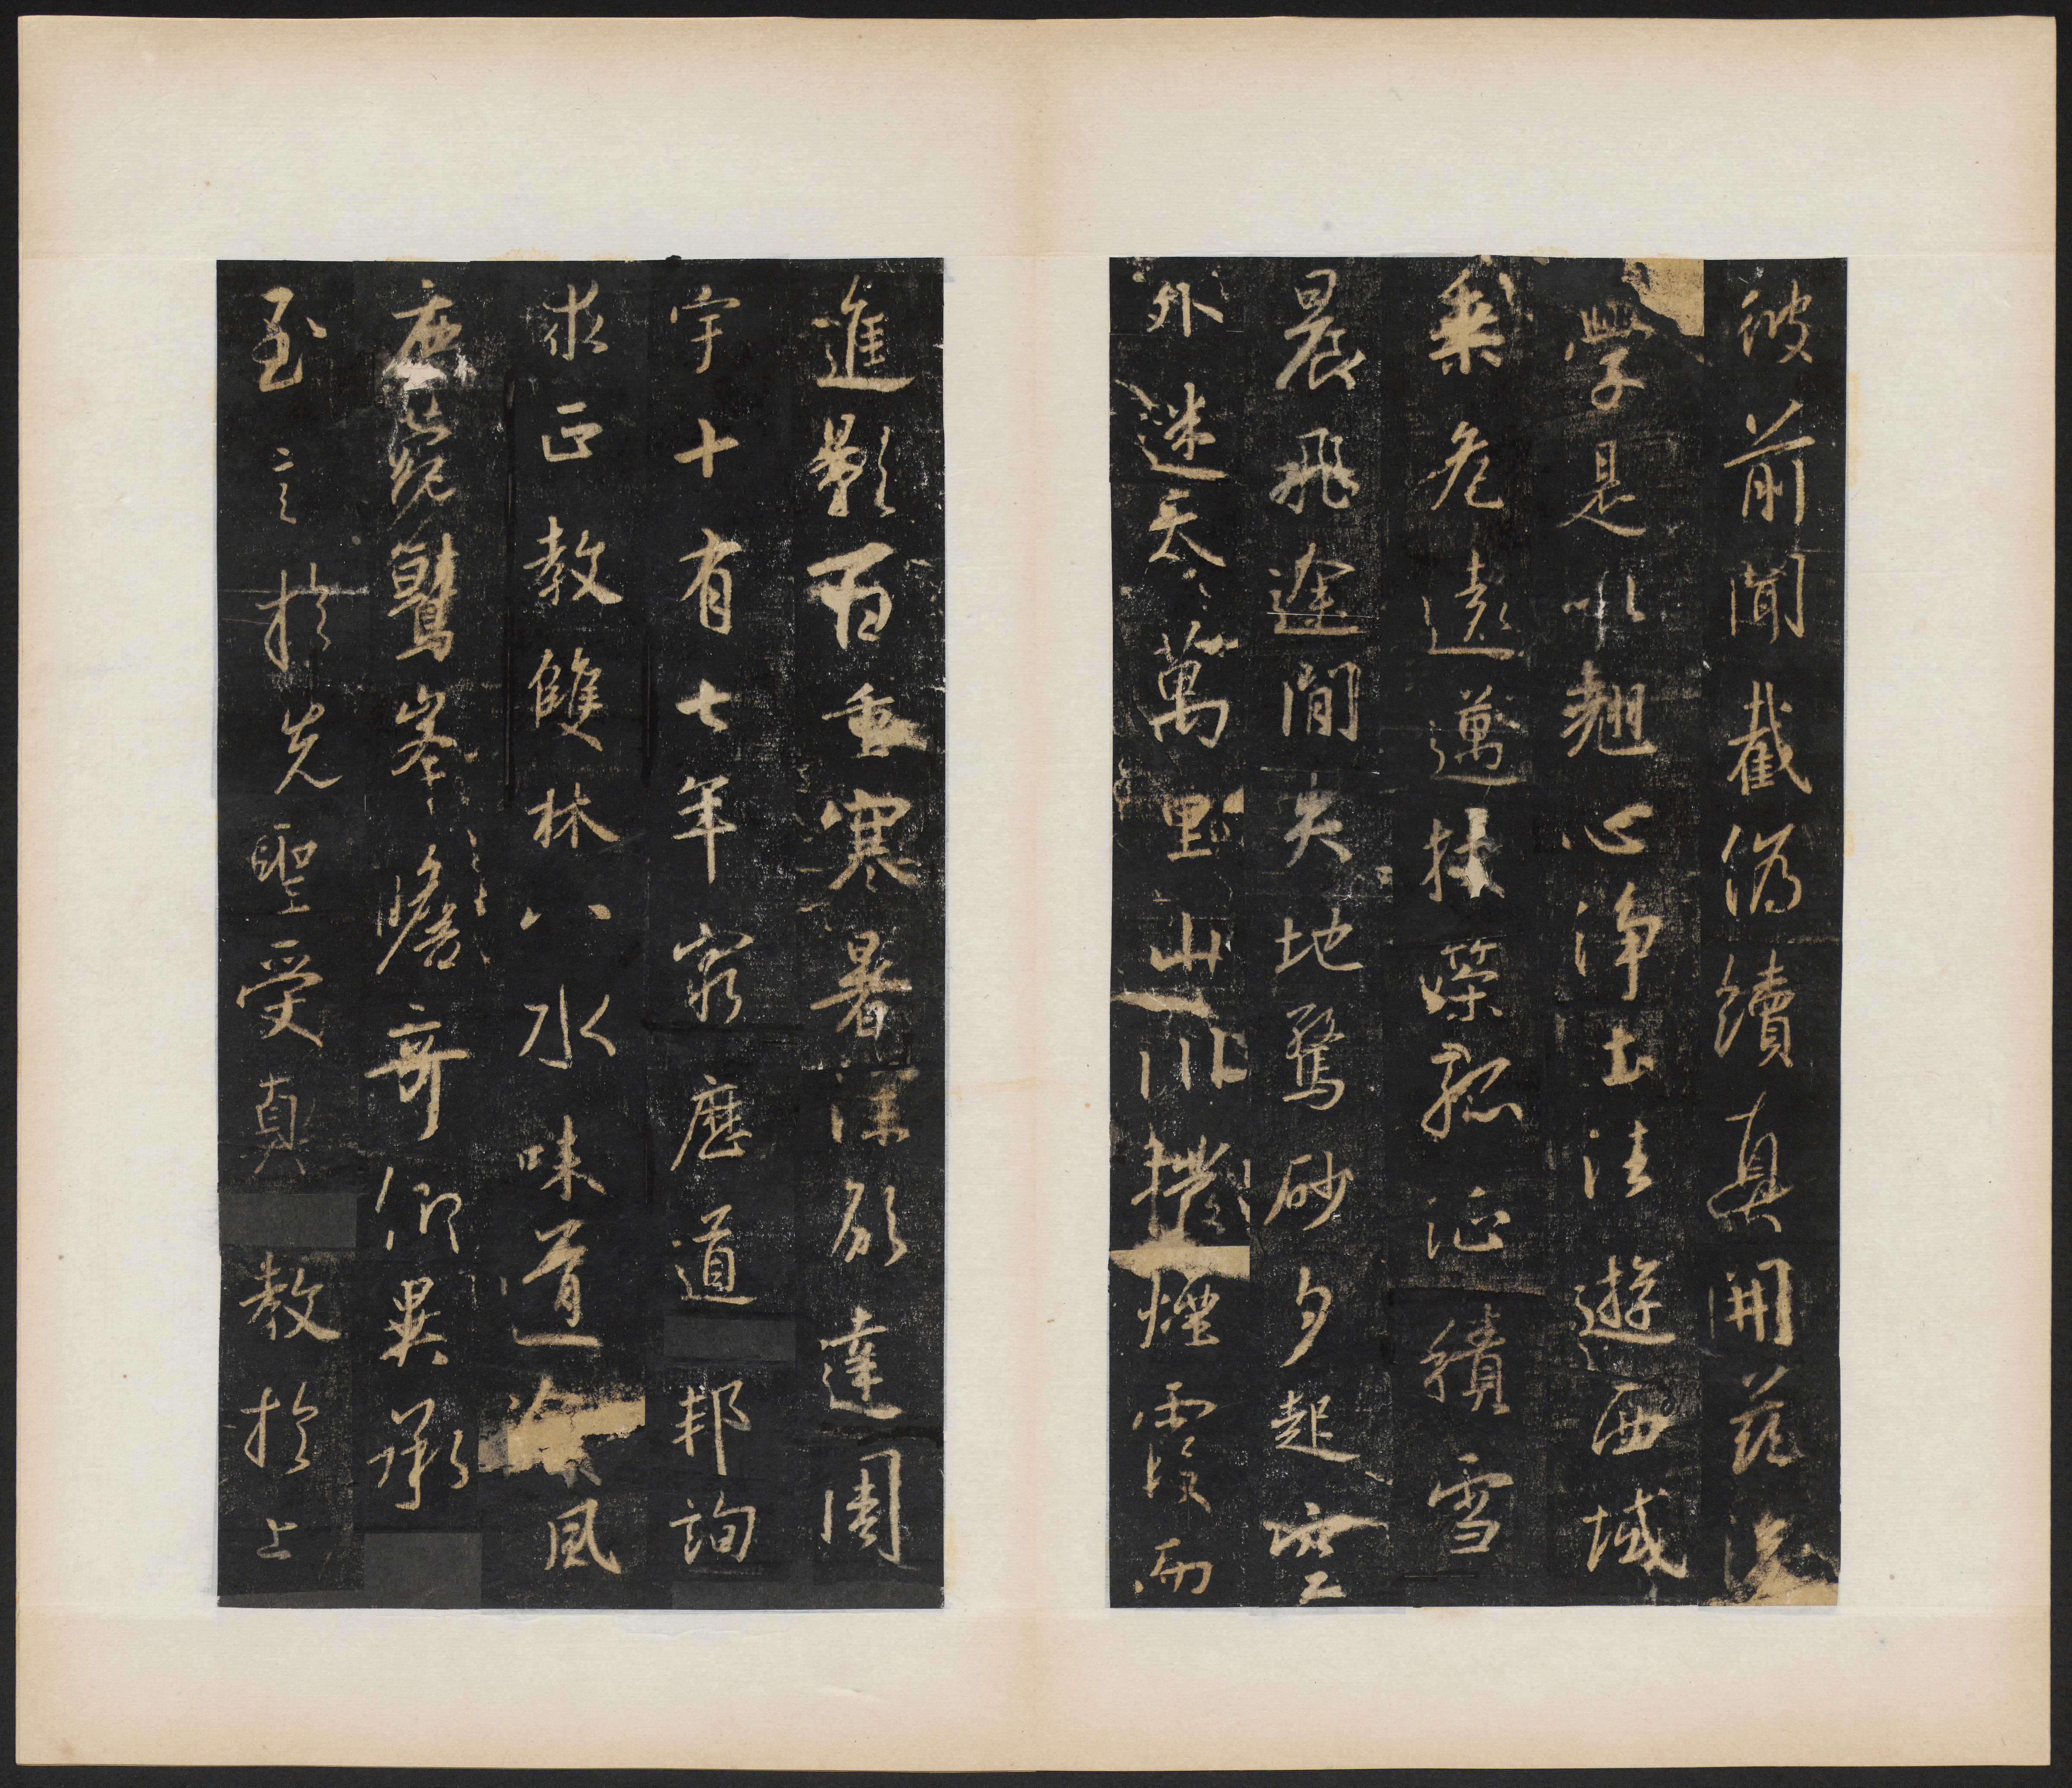 彼前聞截偽續真開茲後
學是以翹心淨土法遊西域
乘危遠邁杖策孤征積雪
晨飛途間失地驚砂夕起空
外迷天萬里山川撥煙霞而
進影百重寒暑深願達周
宇十有七年窮歷道邦詢
求正教雙林八水味道飡風
鹿菀鷲峯瞻奇仰異承
至言於先聖受真教於上